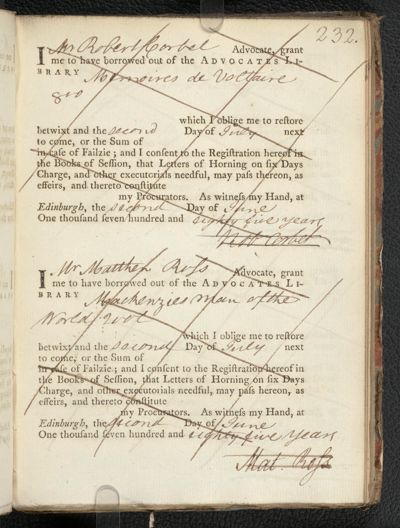 232.
I Mr Robert Corbet Advocate, grant
me to have borrowed out of the ADVOCATES LI-
BRARY Memoires de Voltaire
8vo
which I oblige me to restore
betwixt and the second Day of July next
to come, or the Sum of
in case of Failzie; and I consent to the Registration hereof in
the Books of Session, that Letters of Horning on six Days
Charge, and other executorials needful, may pass thereon, as
effeirs, and thereto constitute
my Procurators. As witness my Hand, at
Edinburgh, the second Day of June
One thousand seven hundred and eighty five years
Rob Corbet
I Mr Matthew Ross Advocate, grant
me to have borrowed out of the ADVOCATES LI-
BRARY Mackenzies man of the
World 2 vol
which I oblige me to restore
betwixt and the second Day of July next
to come, or the Sum of
in case of Failzie; and I consent to the Registration hereof in
the Books of Session, that Letters of Horning on six Days
Charge, and other executorials needful, may pass hereon, as
effeirs, and thereto constitute
my Procurators. As witness my Hand, at
Edinburgh, the second Day of June
One thousand seven hundred and eighty five years
Mat. Ross